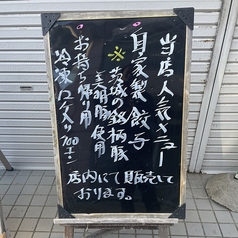 当店人気メニュー
自家製餃子
※茨城の銘柄豚
美明豚使用
お持ち帰り用
冷凍ロ入り700エン
店内にて販売して
おります。